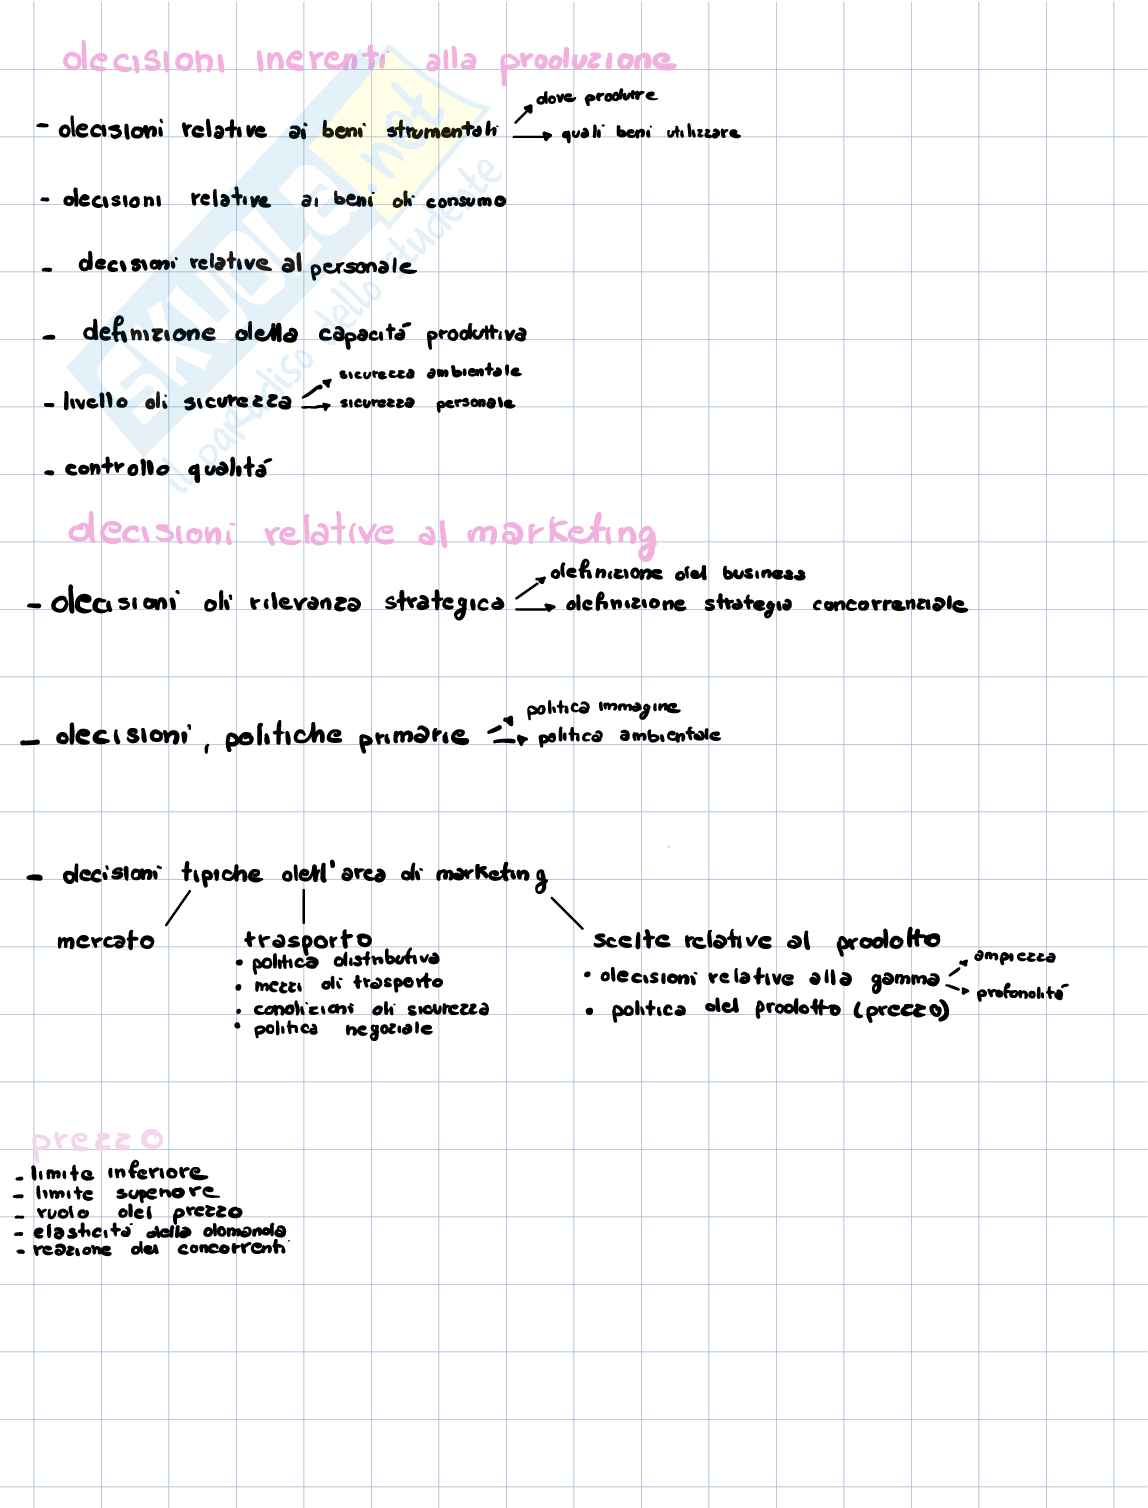 decisioni inerenti alla produzione
dove produrre
- decisioni relative ai beni strumentali
quali beni utilizzare
- decisioni relative ai beni di consumo
- decisioni relative al personale
- definizione della capacità produttiva
sicurezza ambientale
- livello di sicurezza
sicurezza personale
- controllo qualità
SKUOLA.net
il paradiso dello studente
decisioni relative al marketing
definizione del business
- decisioni di rilevanza strategica
definizione strategia concorrenziale
politica immagine
- decisioni, politiche primarie
politica ambientale
- decisioni tipiche dell'area di marketing
mercato
trasporto
• politica distributiva
• mezzi di trasporto
• condizioni di sicurezza
• politica negoziale
scelte relative al prodotto
ampiezza
• decisioni relative alla gamma
profondità
• politica del prodotto (prezzo)
prezzo
- limite inferiore
- limite superiore
- ruolo del prezzo
- elasticità della domanda
- reazione dei concorrenti